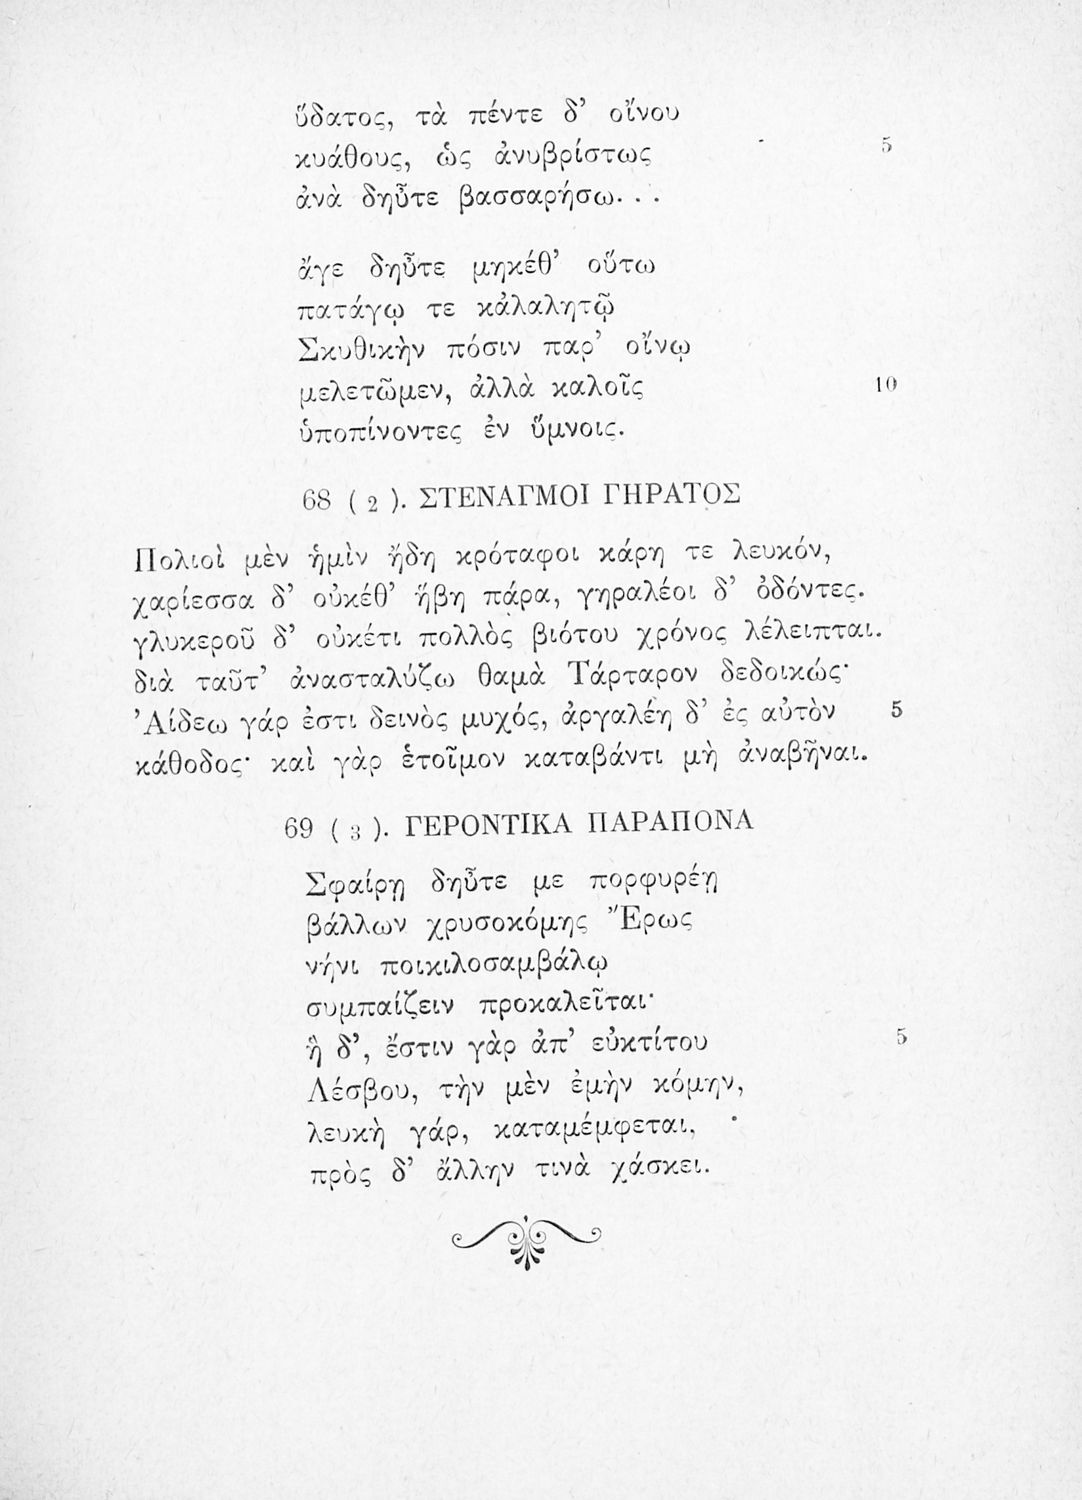 ὕδατος, τὰ πέντε δ’ οἴνου
κυάθους, ὡς ἀνυβρίστως 5
ἀνὰ δηὖτε βασσαρήσω. . .
ἄγε δηὖτε μηκέθ’ οὕτω
πατάγῳ τε κἀλαλητῷ
Σκυθικὴν πόσιν παρ’ οἴνῳ
μελετῶμεν, ἀλλὰ καλοῖς 10
ὑποπίνοντες ἐν ὕμνοις.
68 ( 2 ). ΣΤΕΝΑΓΜΟΙ ΓΗΡΑΤΟΣ
Πολιοὶ μὲν ἡμὶν ἤδη κρόταφοι κάρη τε λευκόν,
χαρίεσσα δ’ οὐκέθ’ ἥβη πάρα, γηραλέοι δ’ ὀδόντες.
γλυκεροῦ δ’ οὐκέτι πολλὸς βιότου χρόνος λέλειπται.
διὰ ταῦτ’ ἀνασταλύζω θαμὰ Τάρταρον δεδοικώς·
Ἀίδεω γάρ ἐστι δεινὸς μυχός, ἀργαλέη δ’ ἐς αὐτὸν 5
κάθοδος· καὶ γὰρ ἑτοῖμον καταβάντι μὴ ἀναβῆναι.
69 ( 3 ). ΓΕΡΟΝΤΙΚΑ ΠΑΡΑΠΟΝΑ
Σφαίρῃ δηὖτε με πορφυρέῃ
βάλλων χρυσοκόμης Ἔρως
νήνι ποικιλοσαμβάλῳ
συμπαίζειν προκαλεῖται·
ἣ δ’, ἔστιν γὰρ ἀπ’ εὐκτίτου 5
Λέσβου, τὴν μὲν ἐμὴν κόμην,
λευκὴ γάρ, καταμέμφεται,
πρὸς δ’ ἄλλην τινὰ χάσκει.